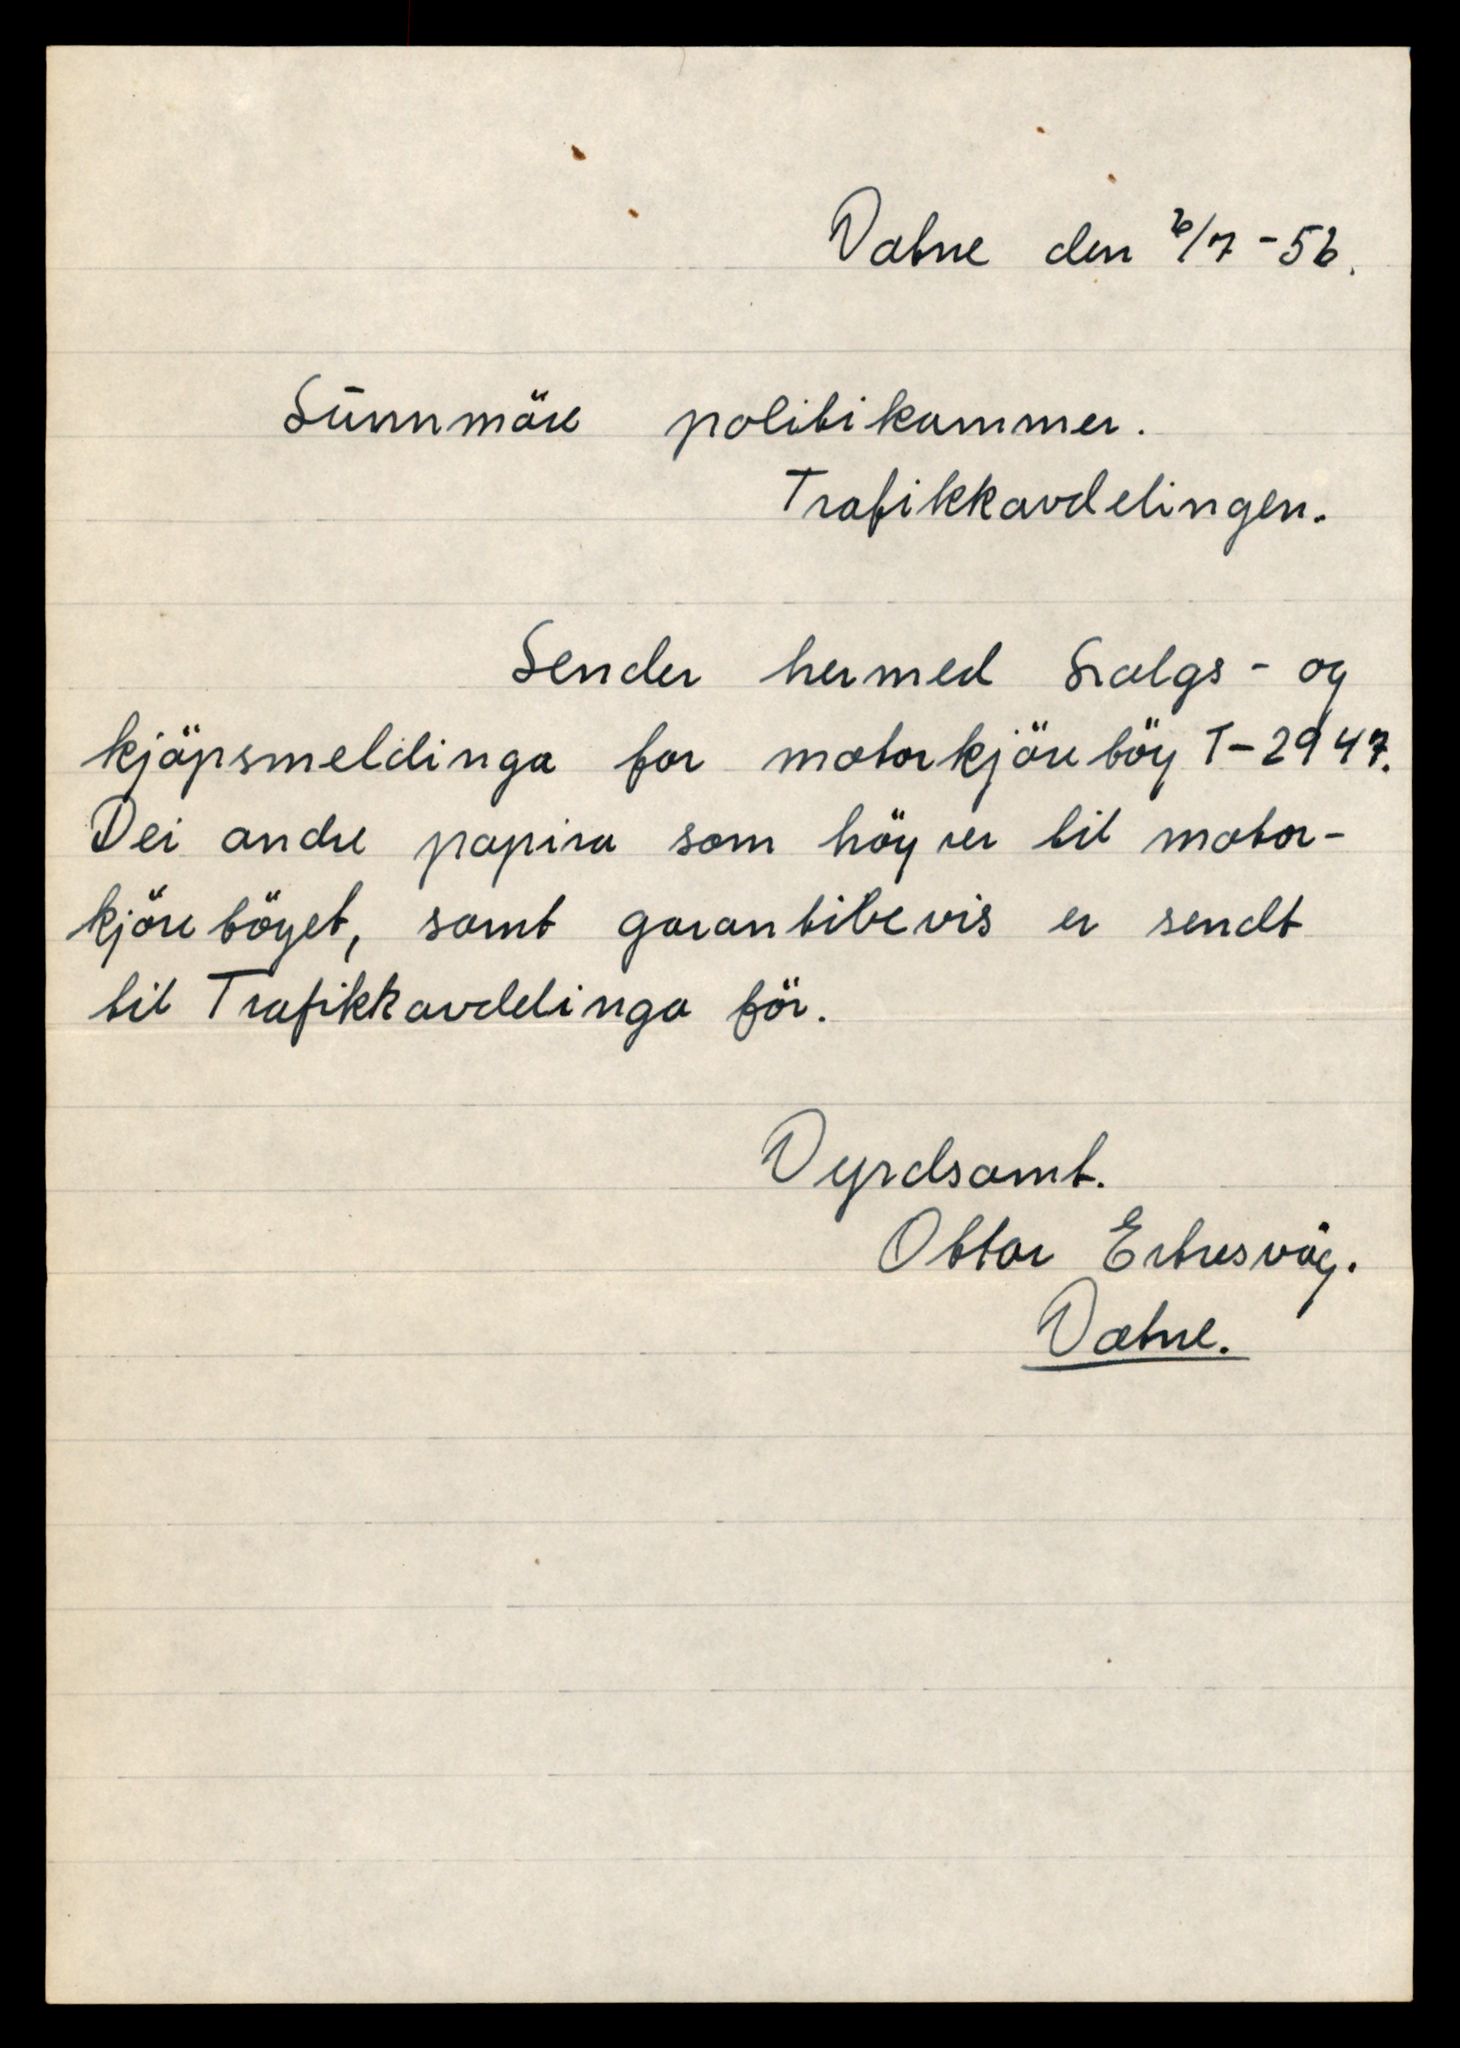 Vatne den 6/7 - 56.
Sunnmöre politikammer.
Trafikkavdelingen.
Sender hermed Salgs - og
kjöpsmeldinga for motorkjöretöy T-2947.
Dei andre papira som höyrer til motor-
kjöretöyet, samt garantibevis er sendt
til Trafikkavdelinga för.
Vyrdsamt.
Ottar Ertresvåg.
Vatne.